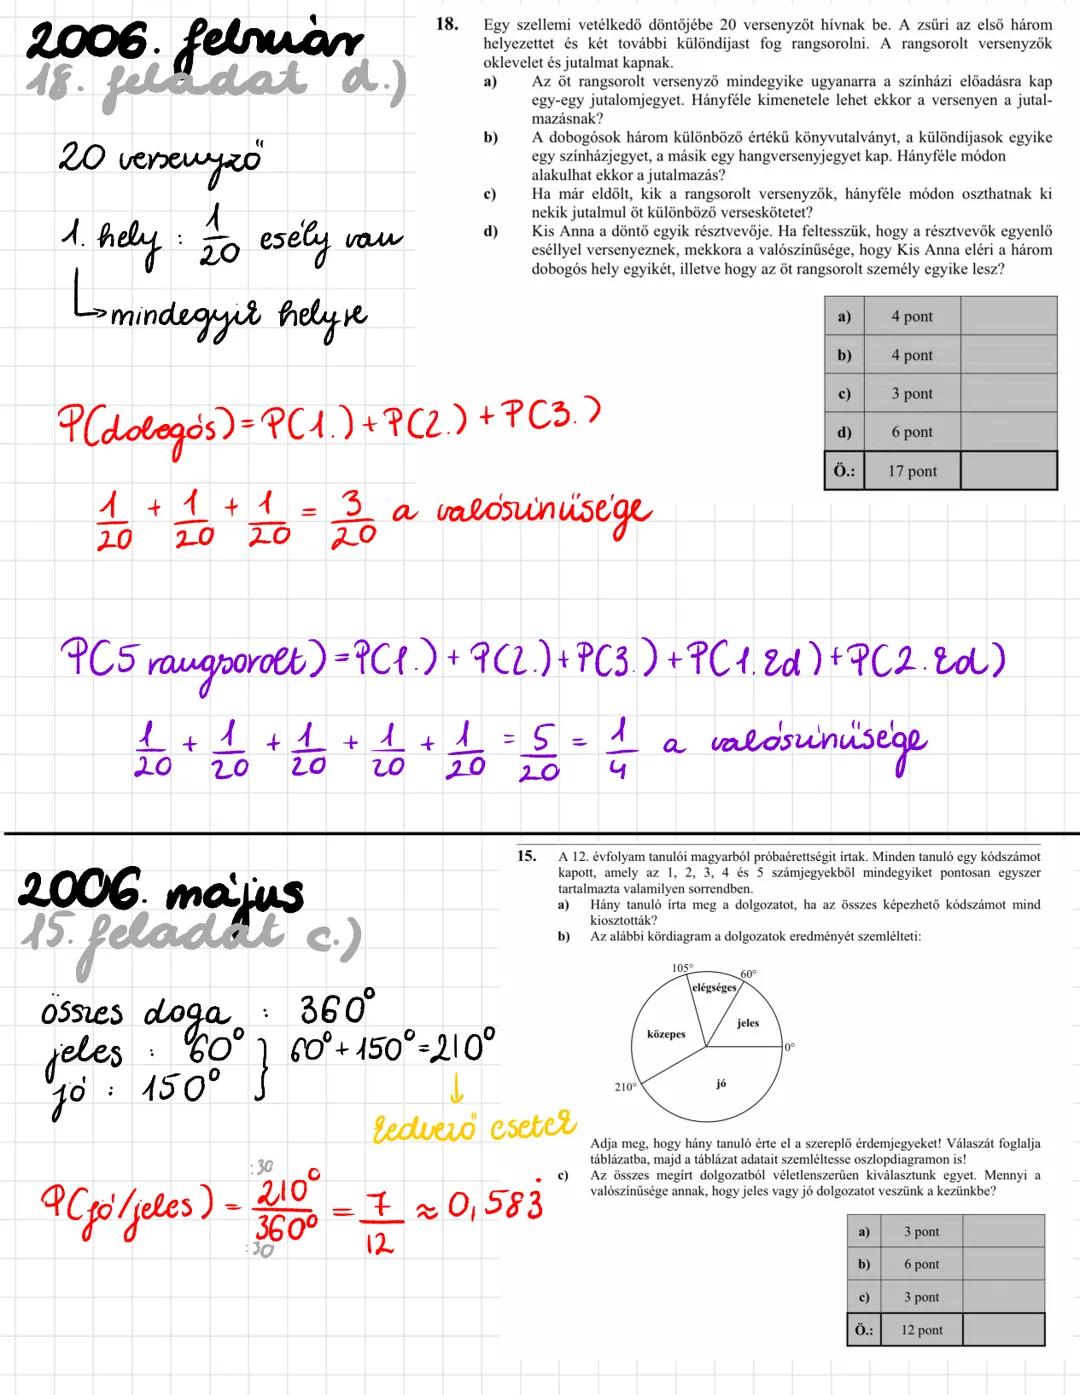 2006. február
18. feladat d.)
20 versenyző
1. hely : 1/20 esély van
↳mindegyik helyre
18. Egy szellemi vetélkedő döntőjébe 20 versenyzőt hívnak be. A zsűri az első három
helyezettet és két további különdíjast fog rangsorolni. A rangsorolt versenyzők
oklevelet és jutalmat kapnak.
a) Az öt rangsorolt versenyző mindegyike ugyanarra a színházi előadásra kap
egy-egy jutalomjegyet. Hányféle kimenetele lehet ekkor a versenyen a jutal-
mazásnak?
b) A dobogósok három különböző értékű könyvutalványt, a különdíjasok egyike
egy színházjegyet, a másik egy hangversenyjegyet kap. Hányféle módon
alakulhat ekkor a jutalmazás?
c) Ha már eldőlt, kik a rangsorolt versenyzők, hányféle módon oszthatnak ki
nekik jutalmul öt különböző verseskötetet?
d) Kis Anna a döntő egyik résztvevője. Ha feltesszük, hogy a résztvevők egyenlő
eséllyel versenyeznek, mekkora a valószínűsége, hogy Kis Anna eléri a három
dobogós hely egyikét, illetve hogy az öt rangsorolt személy egyike lesz?
a) 4 pont
b) 4 pont
c) 3 pont
d) 6 pont
Ö.: 17 pont
P(dobogós)=P(1.)+P(2.)+P(3.)
1/20 + 1/20 + 1/20 = 3/20 a valósinűsége
P(5 rangsorolt)=P(1.)+P(2.)+P(3.)+P(1.kd)+P(2.kd)
1/20 + 1/20 + 1/20 + 1/20 + 1/20 = 5/20 = 1/4 a valósinűsége
2006. május
15. feladat c.)
összes doga : 360°
jeles : 60° } 60°+150°=210°
jó : 150°
↓
kedvező esetek
P(jó/jeles) = 210° :30/360° :30 = 7/12 ≈ 0,583̇
15. A 12. évfolyam tanulói magyarból próbaérettségit írtak. Minden tanuló egy kódszámot
kapott, amely az 1, 2, 3, 4 és 5 számjegyekből mindegyiket pontosan egyszer
tartalmazta valamilyen sorrendben.
a) Hány tanuló írta meg a dolgozatot, ha az összes képezhető kódszámot mind
kiosztották?
b) Az alábbi kördiagram a dolgozatok eredményét szemlélteti:
105°
60°
elégséges
jeles
közepes
0°
210°
jó
Adja meg, hogy hány tanuló érte el a szereplő érdemjegyeket! Válaszát foglalja
táblázatba, majd a táblázat adatait szemléltesse oszlopdiagramon is!
c) Az összes megírt dolgozatból véletlenszerűen kiválasztunk egyet. Mennyi a
valószínűsége annak, hogy jeles vagy jó dolgozatot veszünk a kezünkbe?
a) 3 pont
b) 6 pont
c) 3 pont
Ö.: 12 pont